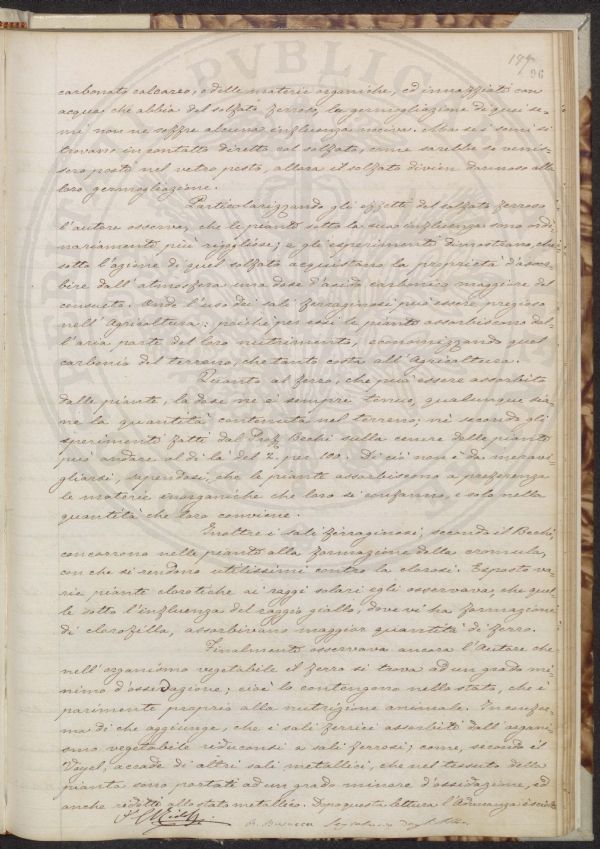 197
96
carbonato calcareo, e delle materie organiche, ed innaffiati con
acqua che abbia del solfato ferroso, la germogliazione di quei se-
mi non ne soffre alcuna influenza nociva. Ma se i semi si
trovano in contatto diretto col solfato, come sarebbe se venis-
sero posti nel vetro pesto, allora il solfato divien dannoso alla
loro germogliazione.
Particolarizzando gli effetti del solfato ferroso
l'autore osserva, che le piante sotto la sua influenza sono ordi
nariamente più rigogliose; e gli esperimenti dimostrano, che
sotto l'azione di quel solfato acquistano la proprietà d'assor-
bire dall'atmosfera una dose d'acido carbonico maggiore del
consueto. Onde l'uso dei sali ferruginosi può essere prezioso
nell'Agricoltura: poiché per essi le piante assorbiscono dal-
l'aria parte del loro nutrimento, economizzando quel
carbonio del terreno, che tanto costa all'Agricoltura.
Quanto al ferro, che può essere assorbito
dalle piante, la dose ne è sempre tenue, qualunque sia
ne la quantità contenuta nel terreno; nè secondo gli
sperimenti fatti dal Prof. Bechi sulla cenere delle piante
può andare al di là del 2 per 100. Di ciò non è da meravi-
gliarsi, sapendosi, che le piante assorbiscono a preferenza
le materie inorganiche che loro si confanno, e solo nella
quantità che loro conviene.
Inoltre i sali ferruginosi, secondo il Bechi,
concorrono nelle piante alla formazione della cromula,
con che si rendono utilissimi contro la clorosi. Esposte va-
rie piante clorotiche ai raggi solari egli osservava, che quel
le sotto l'influenza del raggio giallo, dove vi ha formazione
di clorofilla, assorbivano maggior quantità di ferro.
Finalmente osservava ancora l'Autore che
nell'organismo vegetabile il ferro si trova ad un grado mi-
nimo d'ossidazione; cioè lo contengono nello stato, che è
parimente proprio alla nutrizione animale. In confer-
ma di che aggiunge, che i sali ferrici assorbiti dall'organi-
smo vegetabile riduconsi a sali ferrosi; come, secondo il
Vogel, accade di altri sali metallici, che nel tessuto della
pianta sono portati ad un grado minore d'ossidazione, ed
anche ridotti allo stato metallico. Dopo questa lettura l'Adunanza è sciolta